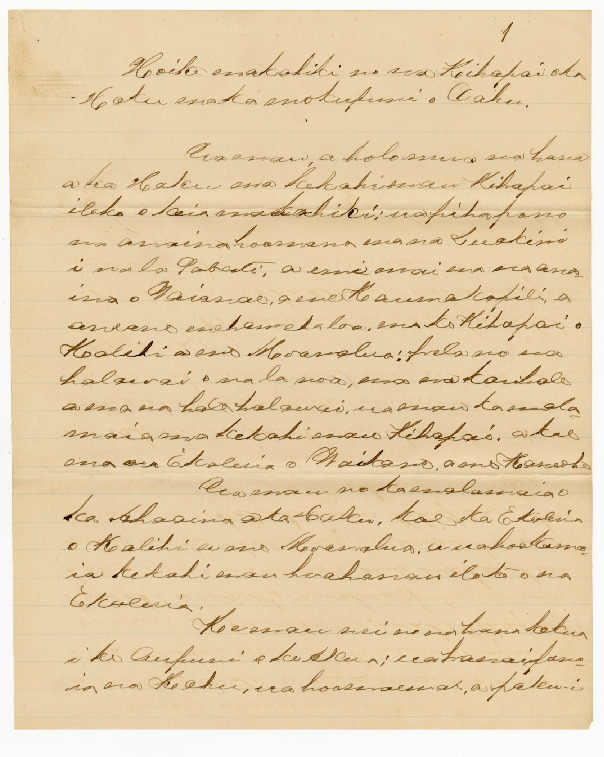 1
Hoike makahiki no na Kihapai o ka
Haku ma ka mokupuni o Oahu.
Ua mau, a holomua na hana
a ka Haku ma kekahi mau Kihapai
iloko o keia makahiki; ua piha pono
na anaina hoomana ma na Luakini
i na la Sabati, a emi mai ma na ana-
ina o Waianae, a me Kaumakapili, a
aneane e nele loa, ma ke Kihapai o
Kalihi a me Moanalua; pela no na
halawai o na la noa, ma na kauhale
a ma na hale halawai, ua mau ka mala-
maia ma kekahi mau Kihapai, a koe
na Ekalesia o Waikane, a me Kaneohe
Ua mau no ka malamaia o
ka Ahaaina a ka Haku, koe ka Ekalesia
o Kalihi a me Moanalua, a ua hookomo-
ia kekahi mau hoahanau iloko o na
Ekalesia.
He mau nei no na hana kokua
i ke Aupuni o ke Akua; ua hanai pono-
ia na Kahu, ua hoomaemae, a pakui